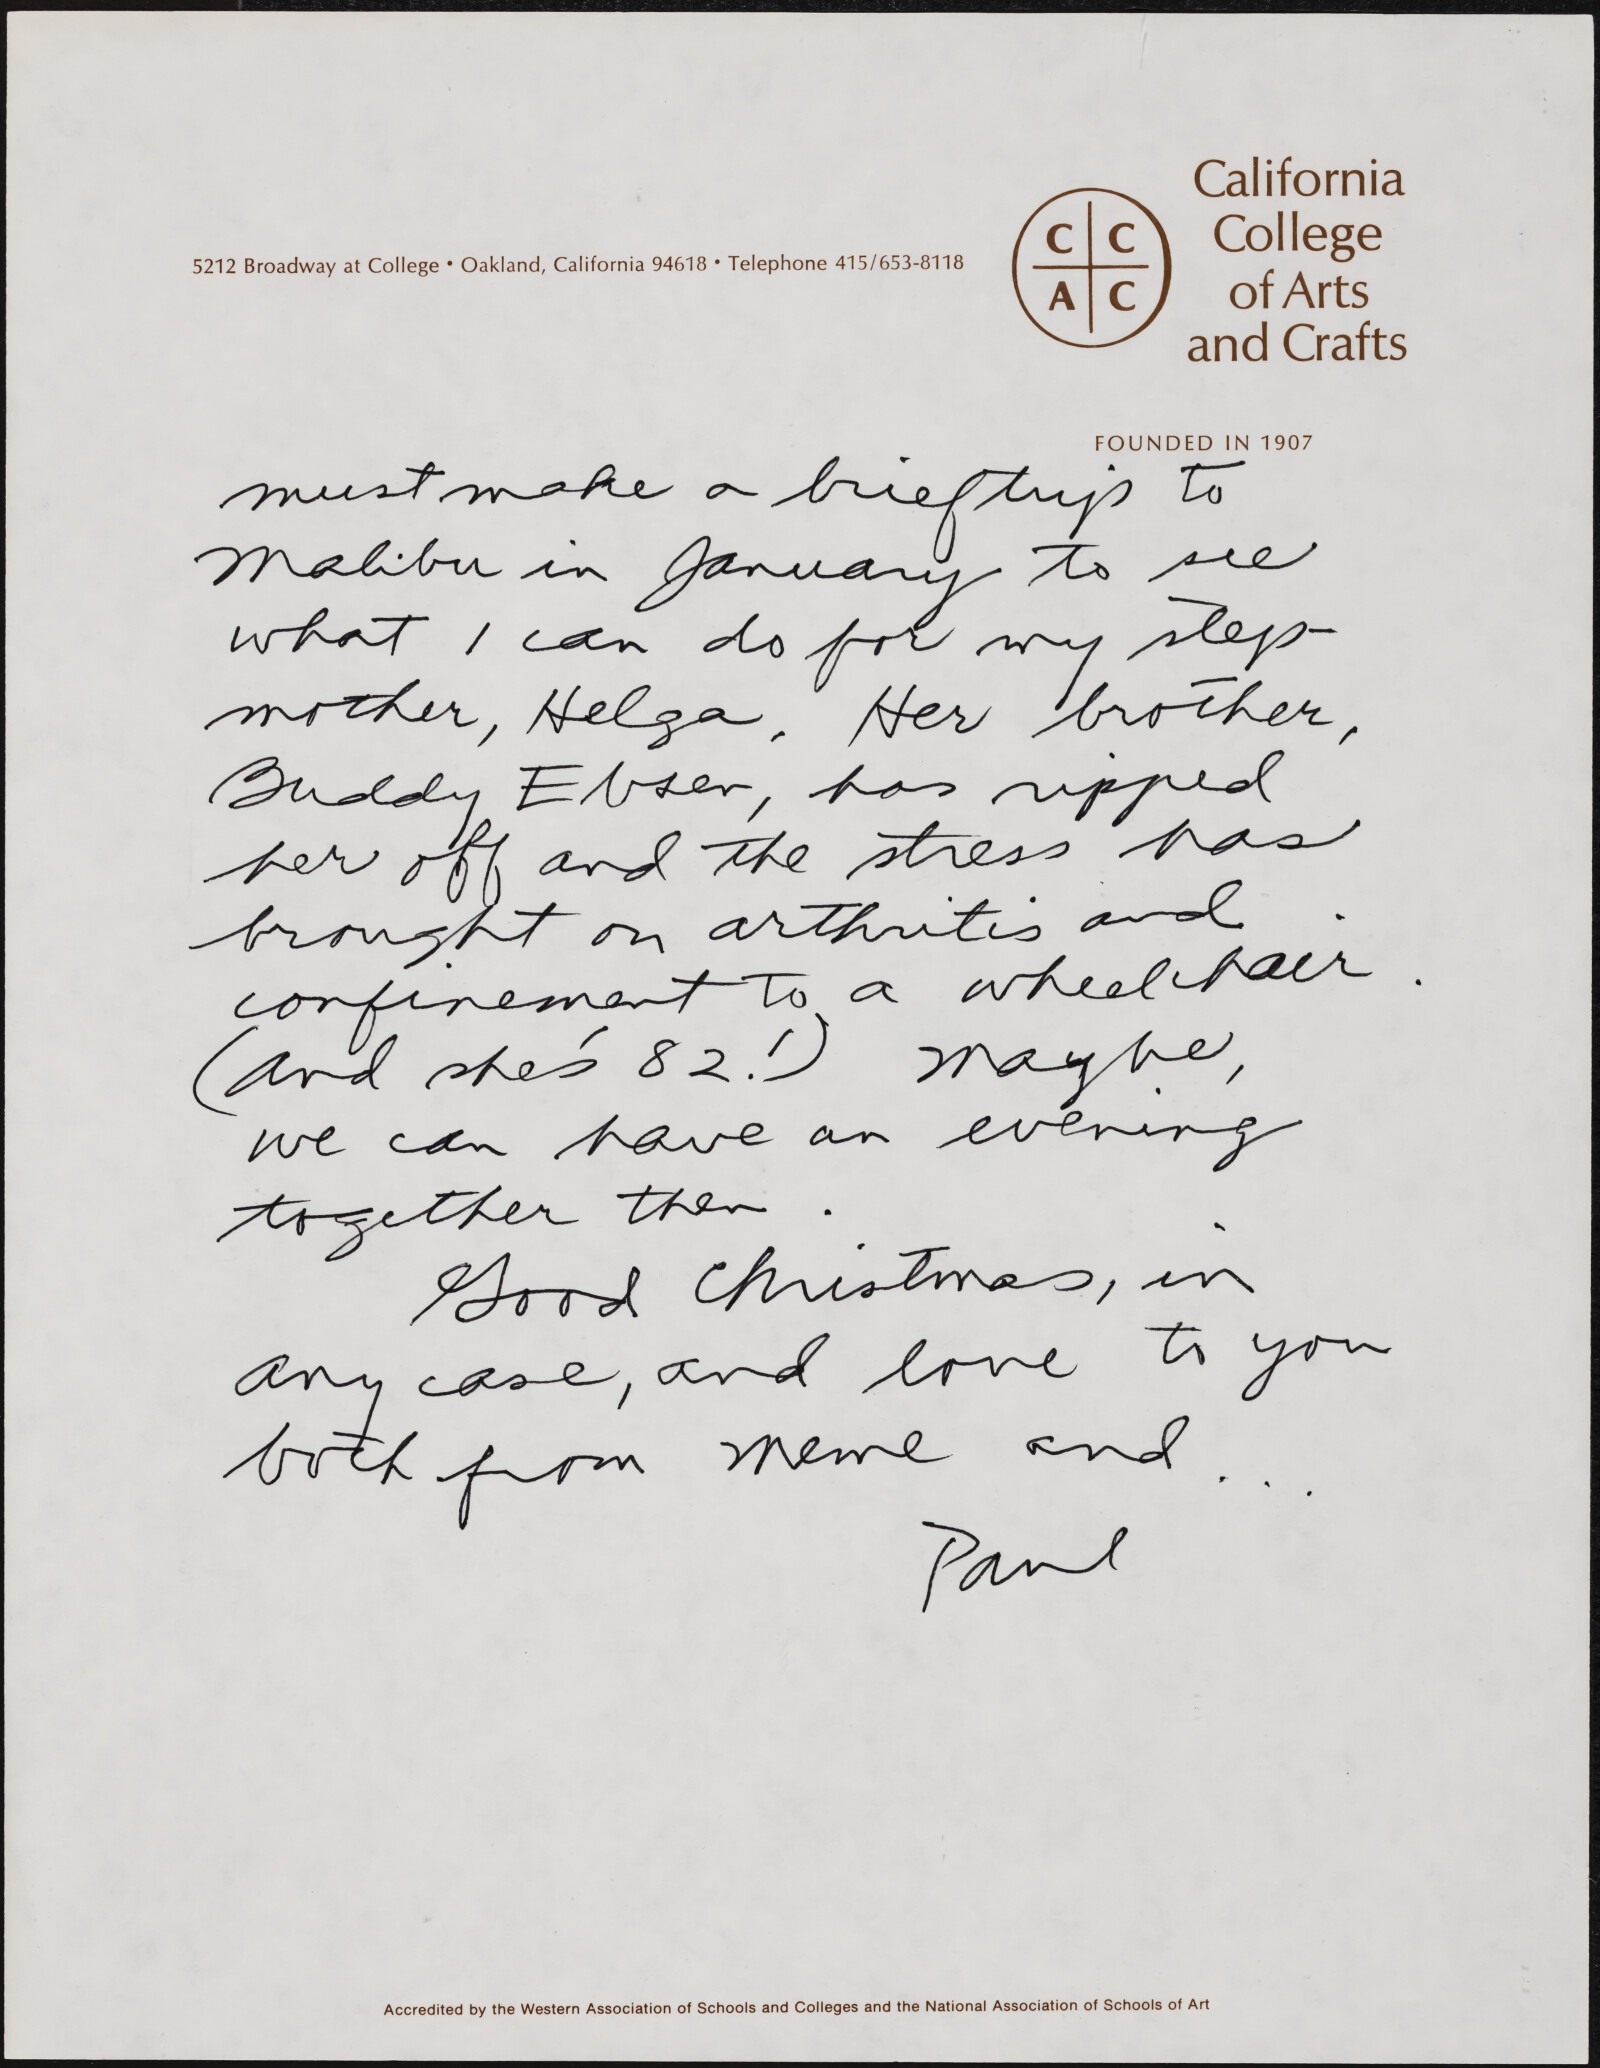 California
College
of Arts
and Crafts
C C
A C
5212 Broadway at College • Oakland, California 94618 • Telephone 415/653-8118
FOUNDED IN 1907
must make a brief trip to
Malibu in January to see
what I can do for my step-
mother, Helga. Her brother,
Buddy Ebsen, has ripped
her off and the stress has
brought on arthritis and
confinement to a wheelchair.
(and she's 82!) Maybe,
we can have an evening
together then.
Good Christmas, in
any case, and love to you
both from Meme and...
Paul
Accredited by the Western Association of Schools and Colleges and the National Association of Schools of Art